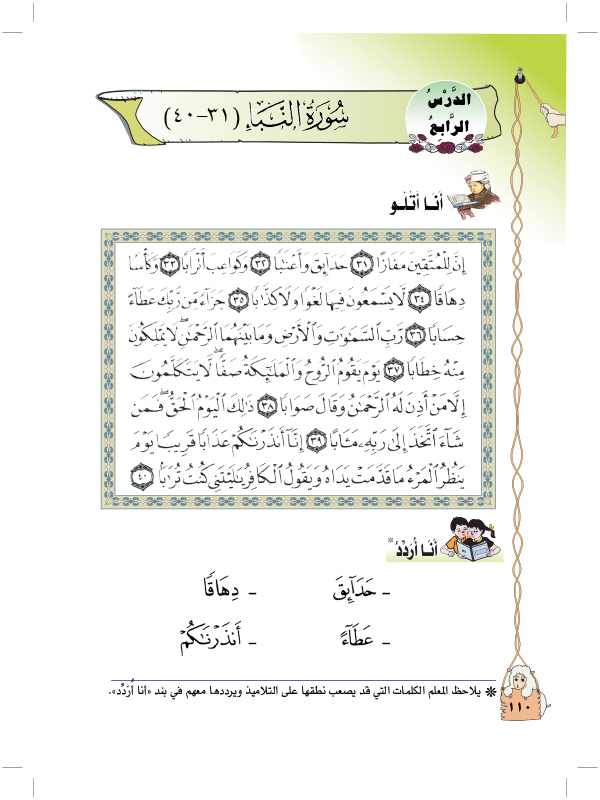 الدَّرْسُ
الرَّابِعُ
سُورَةُ النَّبَإِ (٣١-٤٠)
أنَا أتْلُـو
إِنَّ لِلْمُتَّقِينَ مَفَازًا ٣١ حَدَآئِقَ وَأَعْنَٰبًا ٣٢ وَكَوَاعِبَ أَتْرَابًا ٣٣ وَكَأْسًا
دِهَاقًا ٣٤ لَّا يَسْمَعُونَ فِيهَا لَغْوًا وَلَا كِذَّٰبًا ٣٥ جَزَآءً مِّن رَّبِّكَ عَطَآءً
حِسَابًا ٣٦ رَّبِّ السَّمَٰوَٰتِ وَالْأَرْضِ وَمَا بَيْنَهُمَا الرَّحْمَٰنِ ۖ لَا يَمْلِكُونَ
مِنْهُ خِطَابًا ٣٧ يَوْمَ يَقُومُ الرُّوحُ وَالْمَلَٰٓئِكَةُ صَفًّا ۖ لَّا يَتَكَلَّمُونَ
إِلَّا مَنْ أَذِنَ لَهُ الرَّحْمَٰنُ وَقَالَ صَوَابًا ٣٨ ذَٰلِكَ الْيَوْمُ الْحَقُّ ۖ فَمَن
شَآءَ اتَّخَذَ إِلَىٰ رَبِّهِۦ مَـَٔابًا ٣٩ إِنَّآ أَنذَرْنَٰكُمْ عَذَابًا قَرِيبًا يَوْمَ
يَنظُرُ الْمَرْءُ مَا قَدَّمَتْ يَدَاهُ وَيَقُولُ الْكَافِرُ يَٰلَيْتَنِي كُنتُ تُرَٰبًا ٤٠
أنَـا أُرَدِّدُ*
- حَدَآئِقَ - دِهَاقًا
- عَطَآءً - أَنذَرْنَٰكُمْ
* يلاحظ المعلم الكلمات التي قد يصعب نطقها على التلاميذ ويرددها معهم في بند «أنا أُرَدِّد».
١١٠